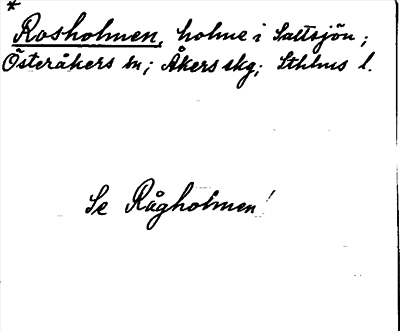 *
Rosholmen, holme i Saltsjön;
Österåkers sn; Åkers skg; Sthlms l.
Se Rågholmen!